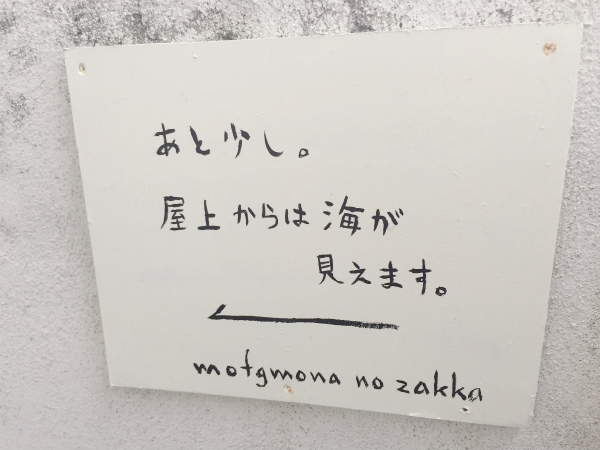 あと少し。
屋上からは海が
見えます。
mofgmona no zakka